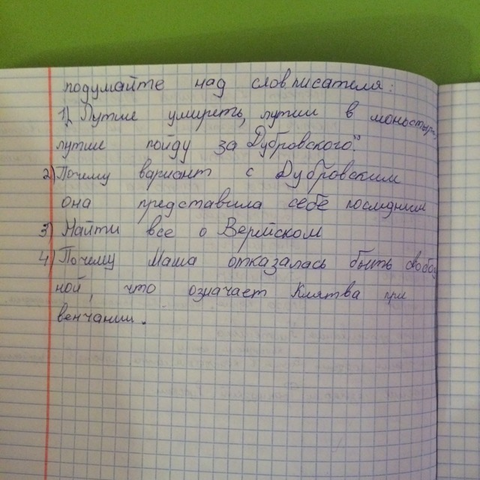 подумайте над слов писателя:
1) "Лутше умиреть, лутше в моностырь,
лутше пойду за Дубровского".
2) Почему вариант с Дубровским
она представила себе последним
3) Найти все о Верейском
4) Почему Маша отказалась быть свобод
ной, что означает клятва при
венчании.